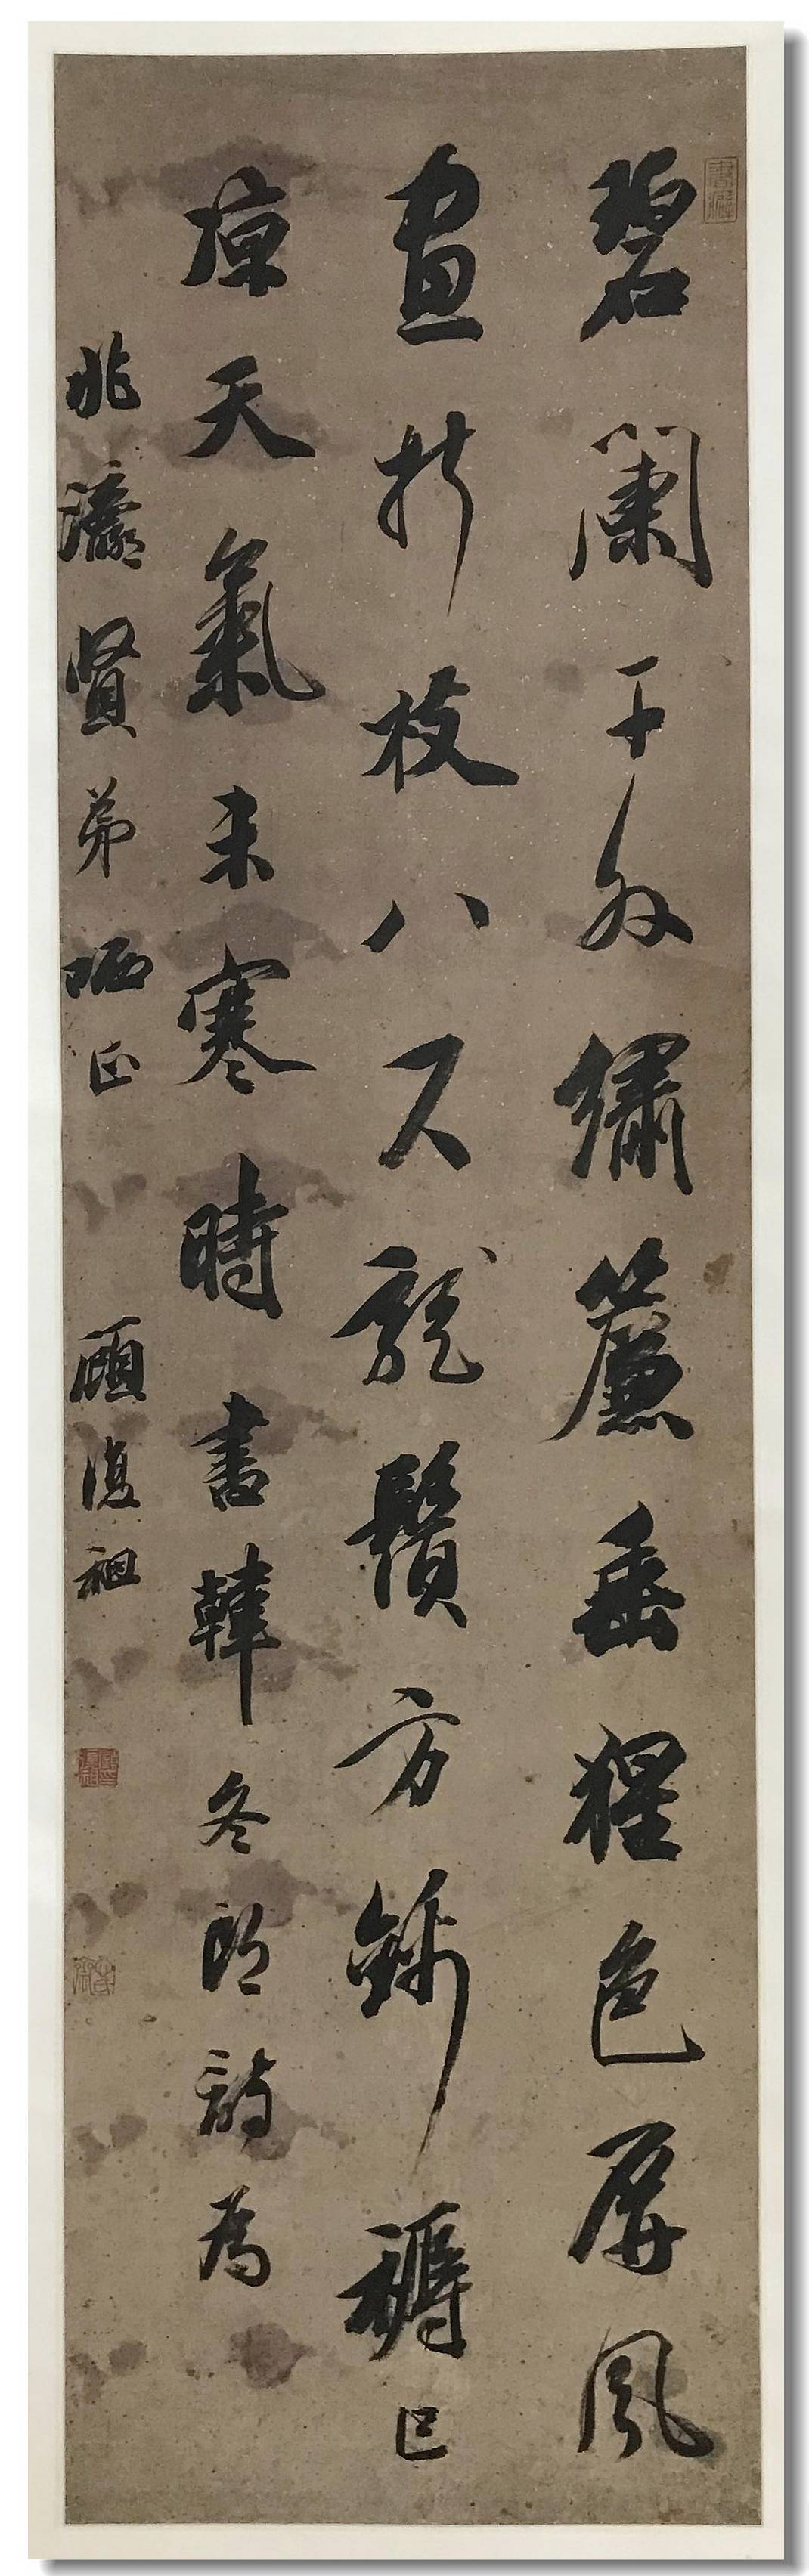 碧闌干外繡簾垂猩色屏風
畫折枝八尺龍鬚方錦褥已
涼天氣未寒時書韓冬郎詩為
兆瀛賢弟哂正 顧復祖
書癖